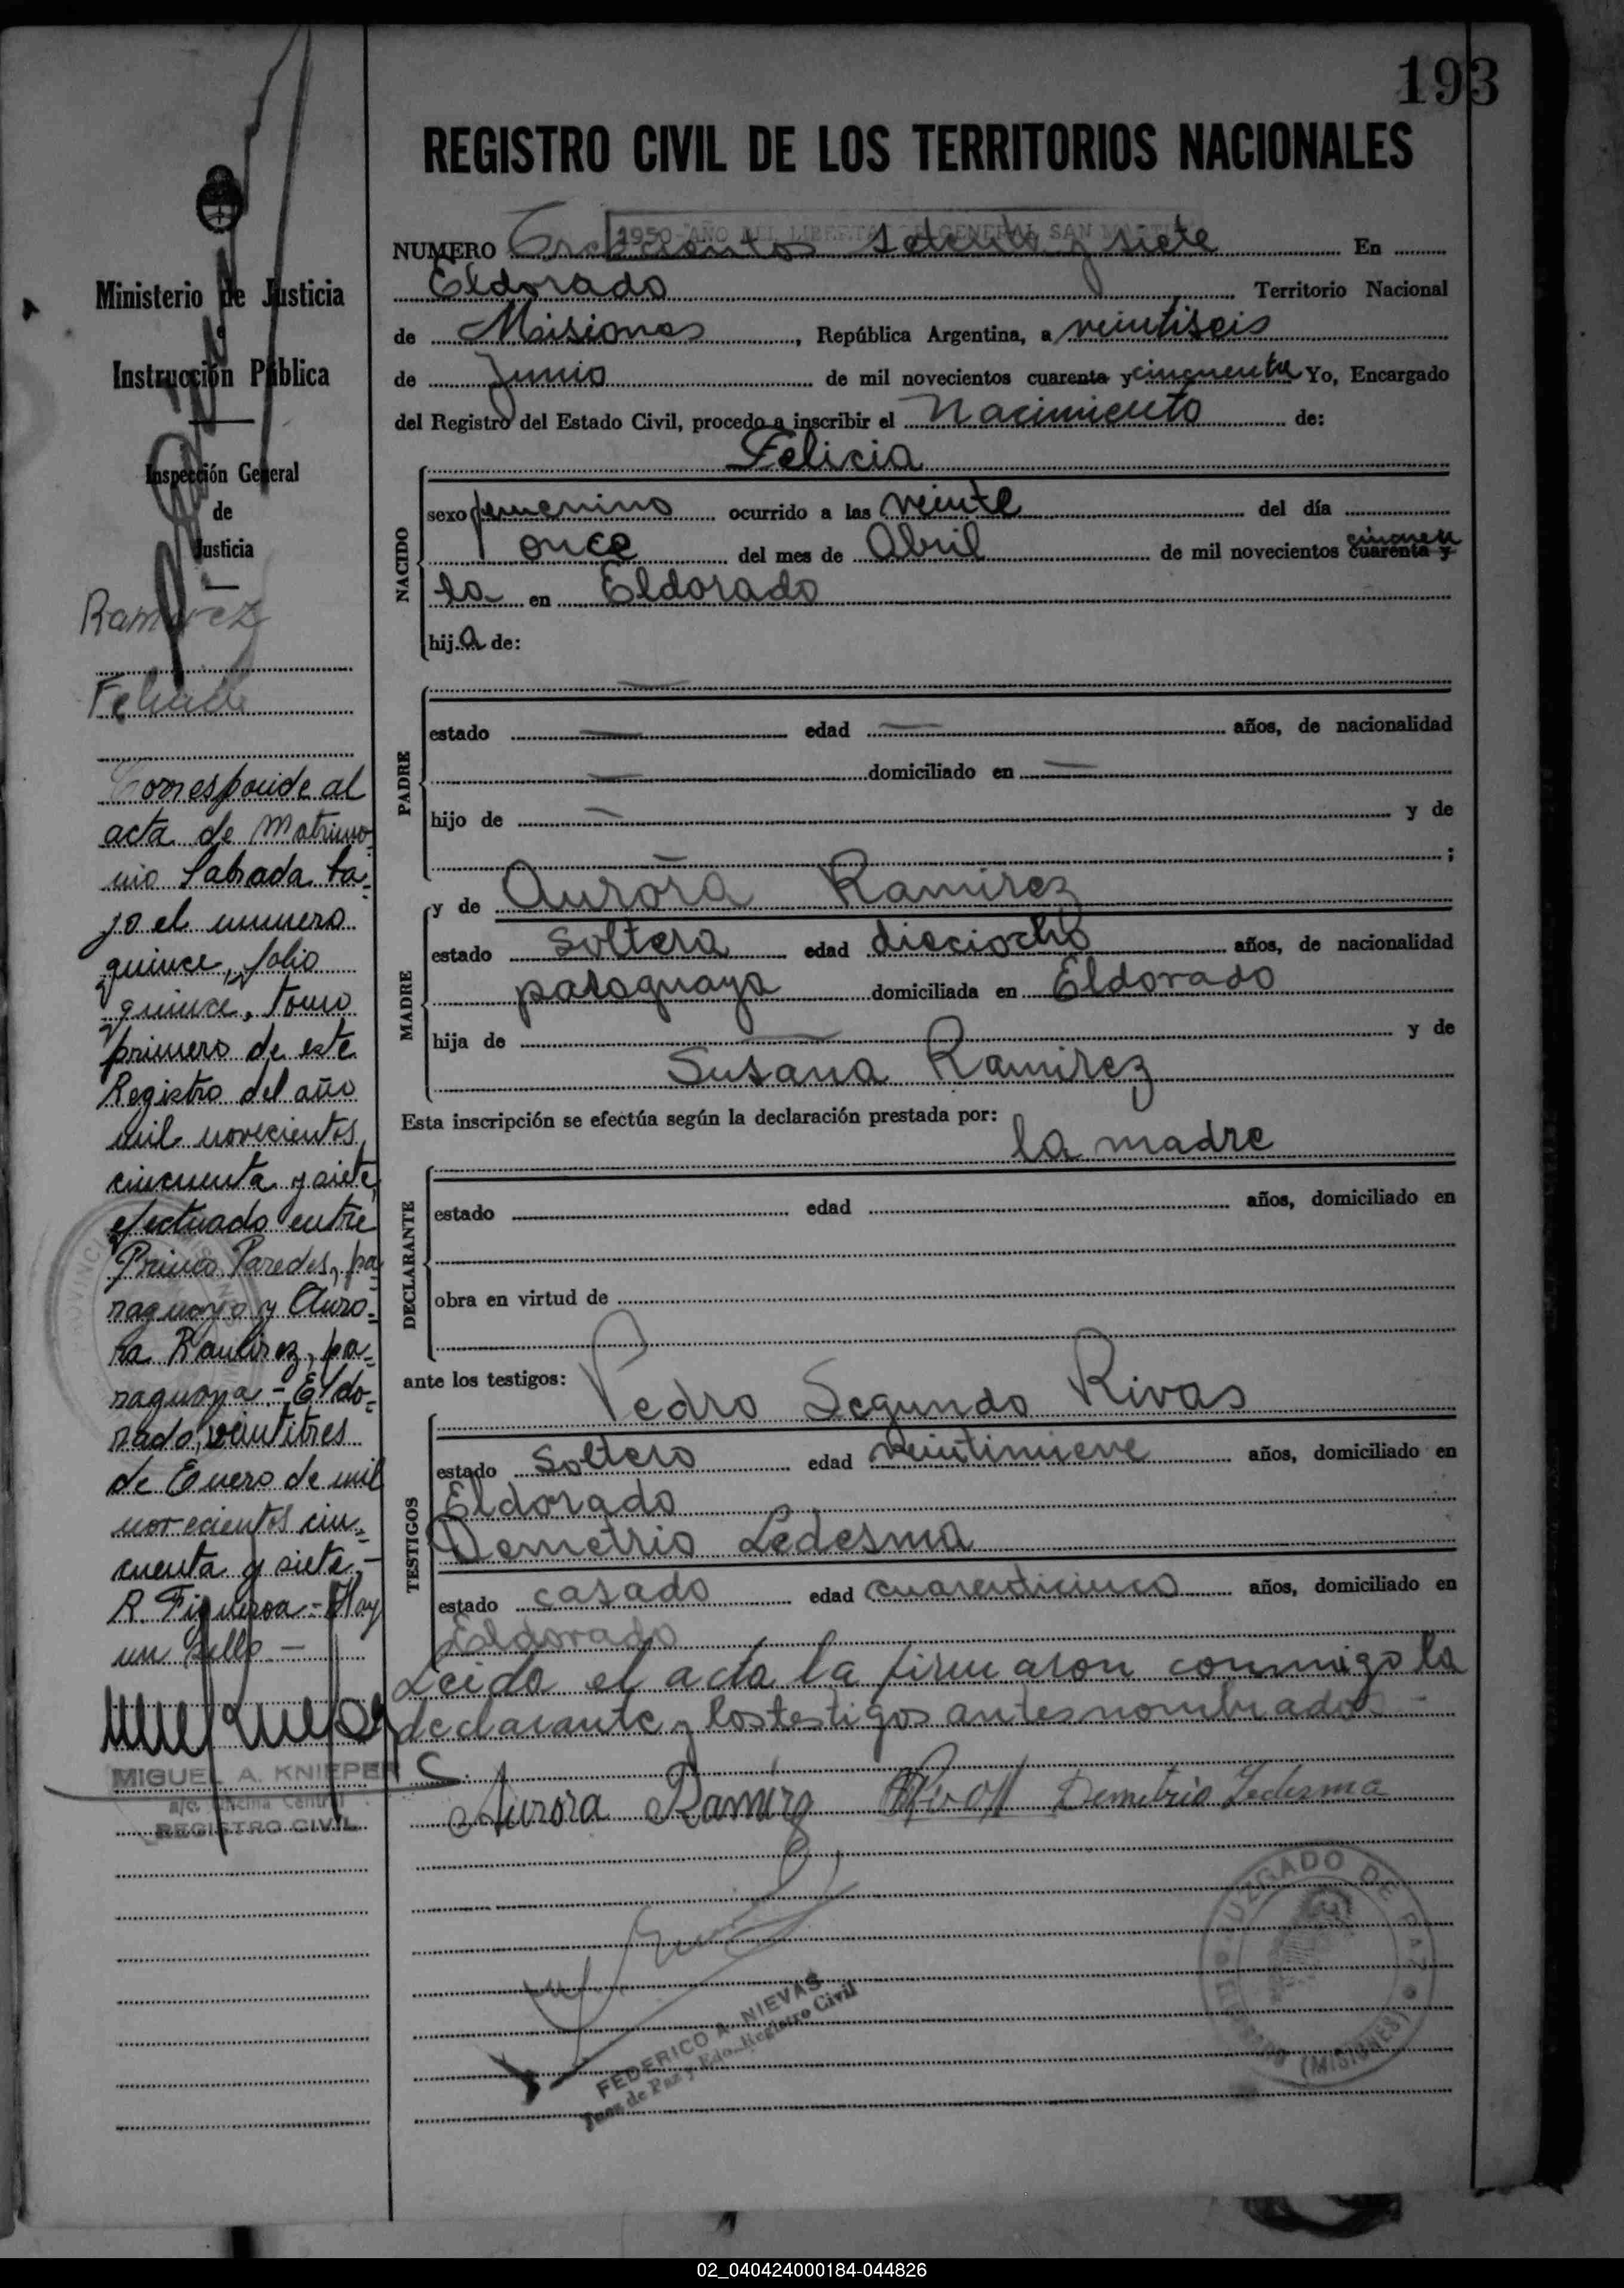 193
REGISTRO CIVIL DE LOS TERRITORIOS NACIONALES
1950 - AÑO DEL LIBERTADOR GENERAL SAN MARTIN
NUMERO Trescientos setenta y siete En
Eldorado Territorio Nacional
de Misiones, República Argentina, a veintiseis
de Junio de mil novecientos cuarenta y cincuenta Yo, Encargado
del Registro del Estado Civil, procedo a inscribir el Nacimiento de:
Felicia
NACIDO
sexo femenino ocurrido a las veinte del día
once del mes de Abril de mil novecientos cuarenta y cincuen
ta en Eldorado
hija de:
PADRE
estado — edad — años, de nacionalidad
— domiciliado en —
hijo de — y de
— ;
MADRE
y de Aurora Ramirez
estado soltera edad dieciocho años, de nacionalidad
paraguaya domiciliada en Eldorado
hija de — y de
Susana Ramirez
Esta inscripción se efectúa según la declaración prestada por:
la madre
DECLARANTE
estado edad años, domiciliado en
obra en virtud de
ante los testigos:
Pedro Segundo Rivas
TESTIGOS
estado soltero edad veintinueve años, domiciliado en
Eldorado
Demetrio Ledesma
estado casado edad cuarenticinco años, domiciliado en
Eldorado
Leida el acta la firmaron conmigo la
declarante y los testigos antes nombrados -
Aurora Ramirez Rivas Demetrio Ledesma
FEDERICO A. NIEVAS
Juez de Paz y Edo. Registro Civil
JUZGADO DE PAZ
(MISIONES)
Ministerio de Justicia
e
Instrucción Pública
Inspección General
de
Justicia
Ramirez
Corresponde al
acta de Matrimo-
nio labrada ba-
jo el numero
quince, folio
quince, tomo
primero de este
Registro del año
mil novecientos
cincuenta y siete,
efectuado entre
Paredes, pa-
raguayo y Auro-
ra Ramirez, pa-
raguaya.- Eldo-
rado, veintitres
de Enero de mil
novecientos cin-
cuenta y siete.-
R. Figueroa - Hay
un sello —
MIGUEL A. KNIEPER
a/c. Oficina Central
REGISTRO CIVIL
02_040424000184-044826